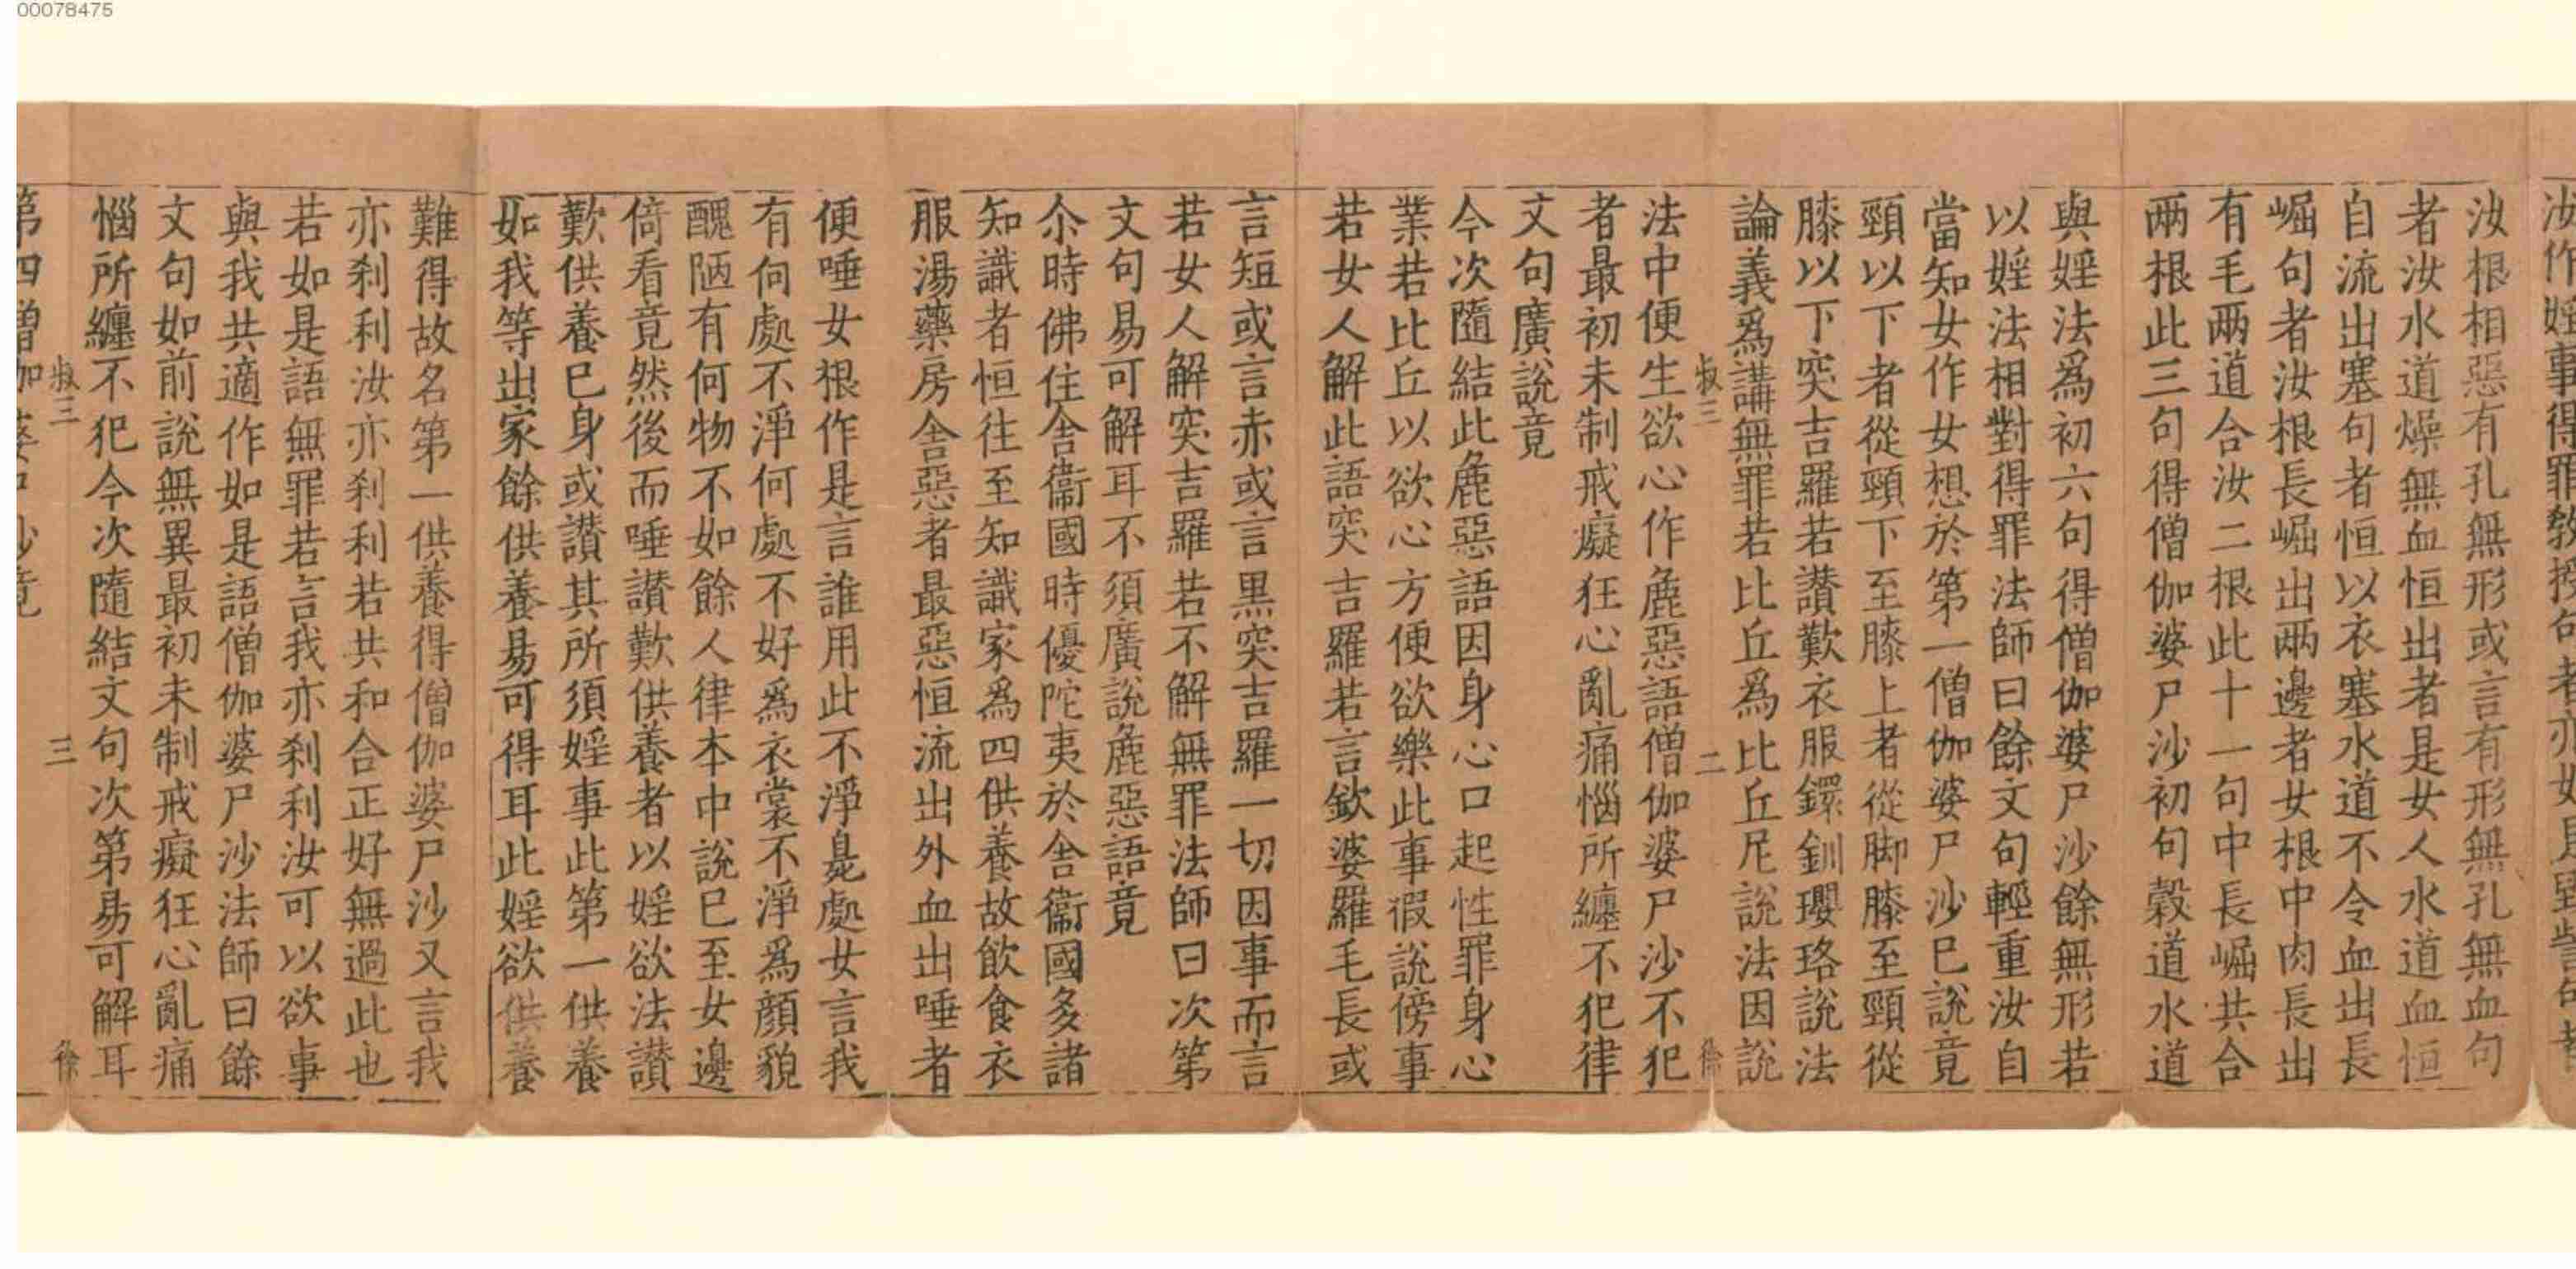 00078475
汝作婬事得罪教授句者亦如
汝根相惡有孔無形或言有形無孔無血句
者汝水道燥無血恒出者是女人水道血恒
自流出塞句者恒以衣塞水道不令血出長
崛句者汝根長崛出兩邊者女根中肉長出
有毛兩道合汝二根此十一句中長崛共合
兩根此三句得僧伽婆尸沙初句穀道水道
與婬法爲初六句得僧伽婆尸沙餘無形若
以婬法相對得罪法師曰餘文句輕重汝自
當知女作女想於第一僧伽婆尸沙巳說竟
頸以下者從頸下至膝上者從脚膝至頸從
膝以下突吉羅若讃歎衣服鐶釧瓔珞說法
論義爲講無罪若比丘爲比丘尼說法因說
叔三 二 徐
法中便生欲心作麁惡語僧伽婆尸沙不犯
者最初未制戒癡狂心亂痛惱所纏不犯律
文句廣說竟
今次隨結此麁惡語因身心口起性罪身心
業若比丘以欲心方便欲樂此事假說傍事
若女人解此語突吉羅若言欽婆羅毛長或
言短或言赤或言黑突吉羅一切因事而言
若女人解突吉羅若不解無罪法師曰次第
文句易可解耳不須廣說麁惡語竟
尒時佛住舍衞國時優陀夷於舍衞國多諸
知識者恒往至知識家爲四供養故飲食衣
服湯藥房舍惡者最惡恒流出外血出唾者
便唾女根作是言誰用此不淨臰處女言我
有何處不淨何處不好爲衣裳不淨爲顔貌
醜陋有何物不如餘人律本中說巳至女邊
倚看竟然後而唾讃歎供養者以婬欲法讃
歎供養巳身或讃其所須婬事此第一供養
如我等出家餘供養易可得耳此婬欲供養
難得故名第一供養得僧伽婆尸沙又言我
亦刹利汝亦刹利若共和合正好無過此也
若如是語無罪若言我亦刹利汝可以欲事
與我共適作如是語僧伽婆尸沙法師曰餘
文句如前說無異最初未制戒癡狂心亂痛
惱所纏不犯今次隨結文句次第易可解耳
叔三 三 徐
第四僧伽婆尸沙竟